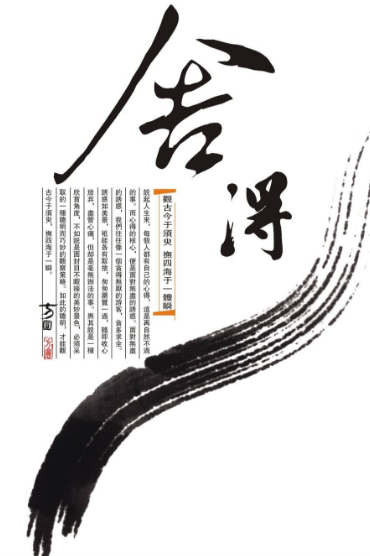 舍
得
觀古今于須臾 撫四海于一體瞬
說起人生來，每個人都有自己的心得，這是再自然不過
的事。而心得的核心，便是面對無盡的誘惑。面對無盡
的誘惑，我們往往像一個貪得無厭的游客，貪多求全。
誘惑如美景，衹能各有取捨，匆匆瀏覽一過，隨即收心
放弃，盡管心痛，但却是毫無辦法的事。與其說是一種
欣賞角度，不如說是面對目不暇接的美妙景色，必須采
取的一種聰明而巧妙的觀察策略。如此的聰明，才能觀
古今于須臾，撫四海于一瞬。
方圓